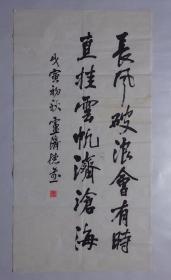 長風破浪會有時
直挂雲帆濟滄海
戊寅初秋